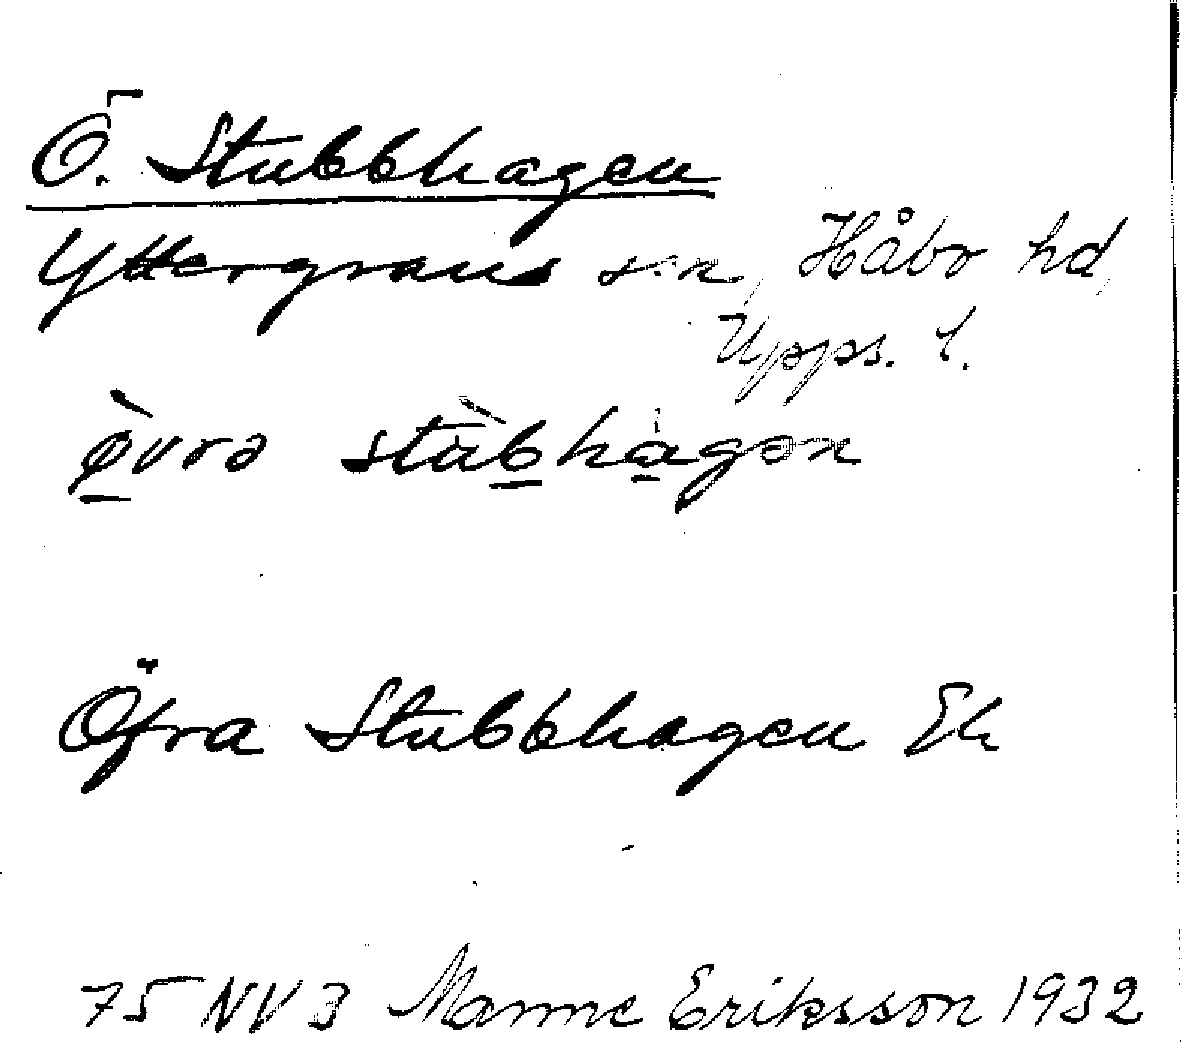 Ö. Stubbhagen
Yttergrans s:n, Håbo hd,
Upps. l.
ø̀vrə stùbhàgən
Öfra Stubbhagen Ek
75 NV 3 Manne Eriksson 1932